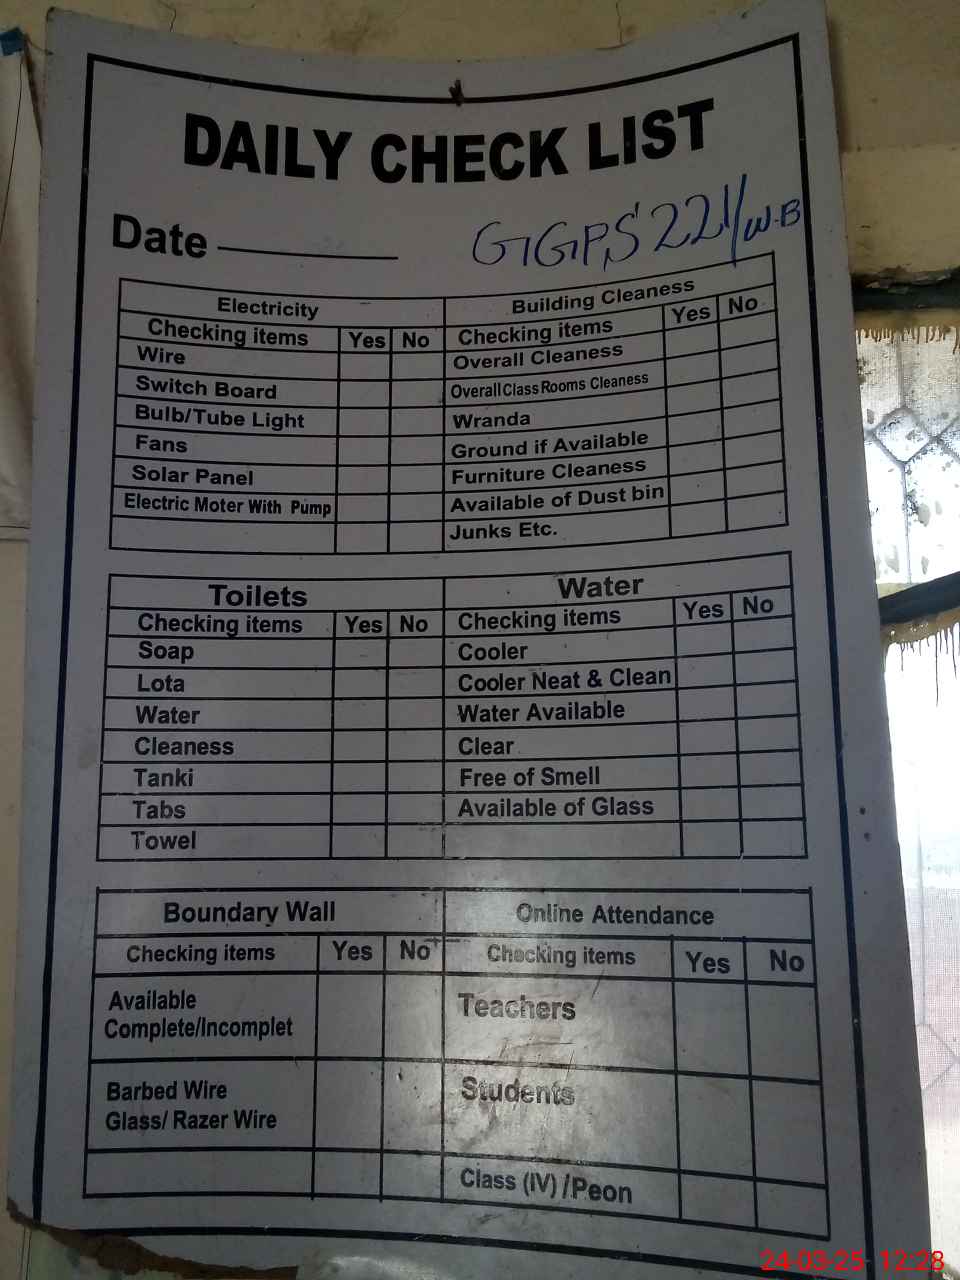 DAILY CHECK LIST
Date
GGPS 221/W-B
Electricity
Checking items Yes No
Wire
Switch Board
Bulb/Tube Light
Fans
Solar Panel
Electric Moter With Pump
Building Cleaness
Checking items Yes No
Overall Cleaness
Overall Class Rooms Cleaness
Wranda
Ground if Available
Furniture Cleaness
Available of Dust bin
Junks Etc.
Toilets
Checking items Yes No
Soap
Lota
Water
Cleaness
Tanki
Tabs
Towel
Water
Checking items Yes No
Cooler
Cooler Neat & Clean
Water Available
Clear
Free of Smell
Available of Glass
Boundary Wall
Checking items Yes No
Available
Complete/Incomplet
Barbed Wire
Glass/ Razer Wire
Online Attendance
Checking items Yes No
Teachers
Students
Class (IV) /Peon
24-03-25 12:28